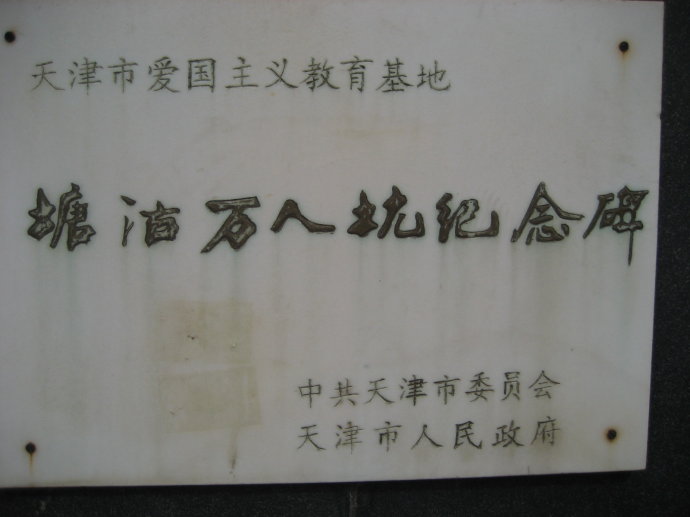 天津市爱国主义教育基地
塘沽万人坑纪念碑
中共天津市委员会
天津市人民政府